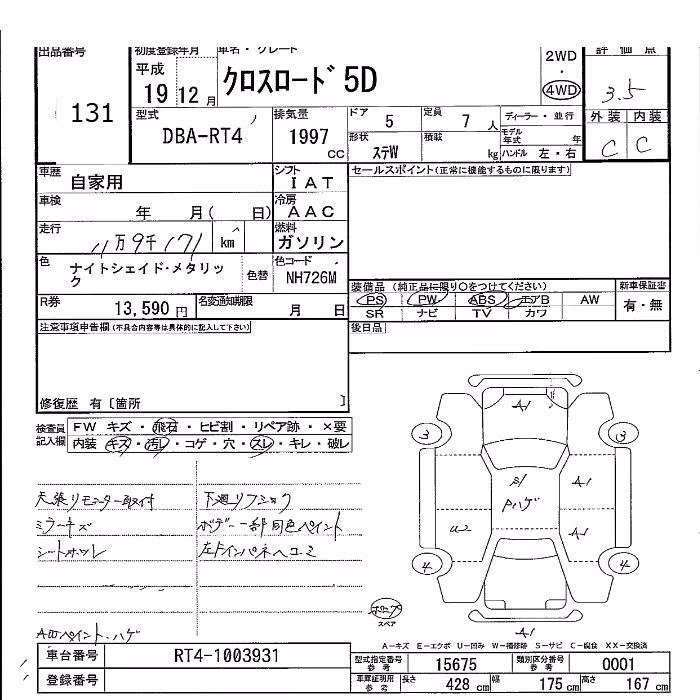 出品番号 初度登録年月 車名・グレード 2WD 評価点
131 平成 19 12 月 クロスロード 5D ・ 4WD 3.5
型式 DBA-RT4 排気量 1997 cc ドア 5 定員 7 人 ディーラー・並行 外装 内装
形状 ステW 積載 kg モデル年式 年 ハンドル 左・右 C C
車歴 自家用 シフト IAT セールスポイント(正常に機能するものに限ります)
車検 年 月( 日) 冷房 AAC
走行 11万9千171 km 燃料 ガソリン
色 ナイトシェイド・メタリック 色替 色コード NH726M
装備品 (純正品に限り○をつけてください) 新車保証書
PS PW ABS エアB AW 有・無
SR ナビ TV カワ
R券 13,590 円 名変通知期限 月 日
後日品
注意事項申告欄(不具合内容等は具体的に記入して下さい)
修復歴 有〔箇所 〕
検査員記入欄 FW キズ・飛石・ヒビ割・リペア跡・×要
内装 キズ・汚レ・コゲ・穴・スレ・キレ・破レ
天張リモニター取付 下廻リフショク
ミラーキズ ボデー一部同色ペイント
シートホツレ 左Fインパネヘコミ
AWペイント・ハゲ
A1
3 3
S1 A1
Pハゲ
A1
4 4
スペア
A1
A−キズ E−エクボ U−凹み W−補修跡 S−サビ C−腐食 XX−交換済
車台番号 RT4-1003931 型式指定番号 参考 15675 類別区分番号 参考 0001
登録番号 車庫証明用 参考 長さ 428 cm 幅 175 cm 高さ 167 cm